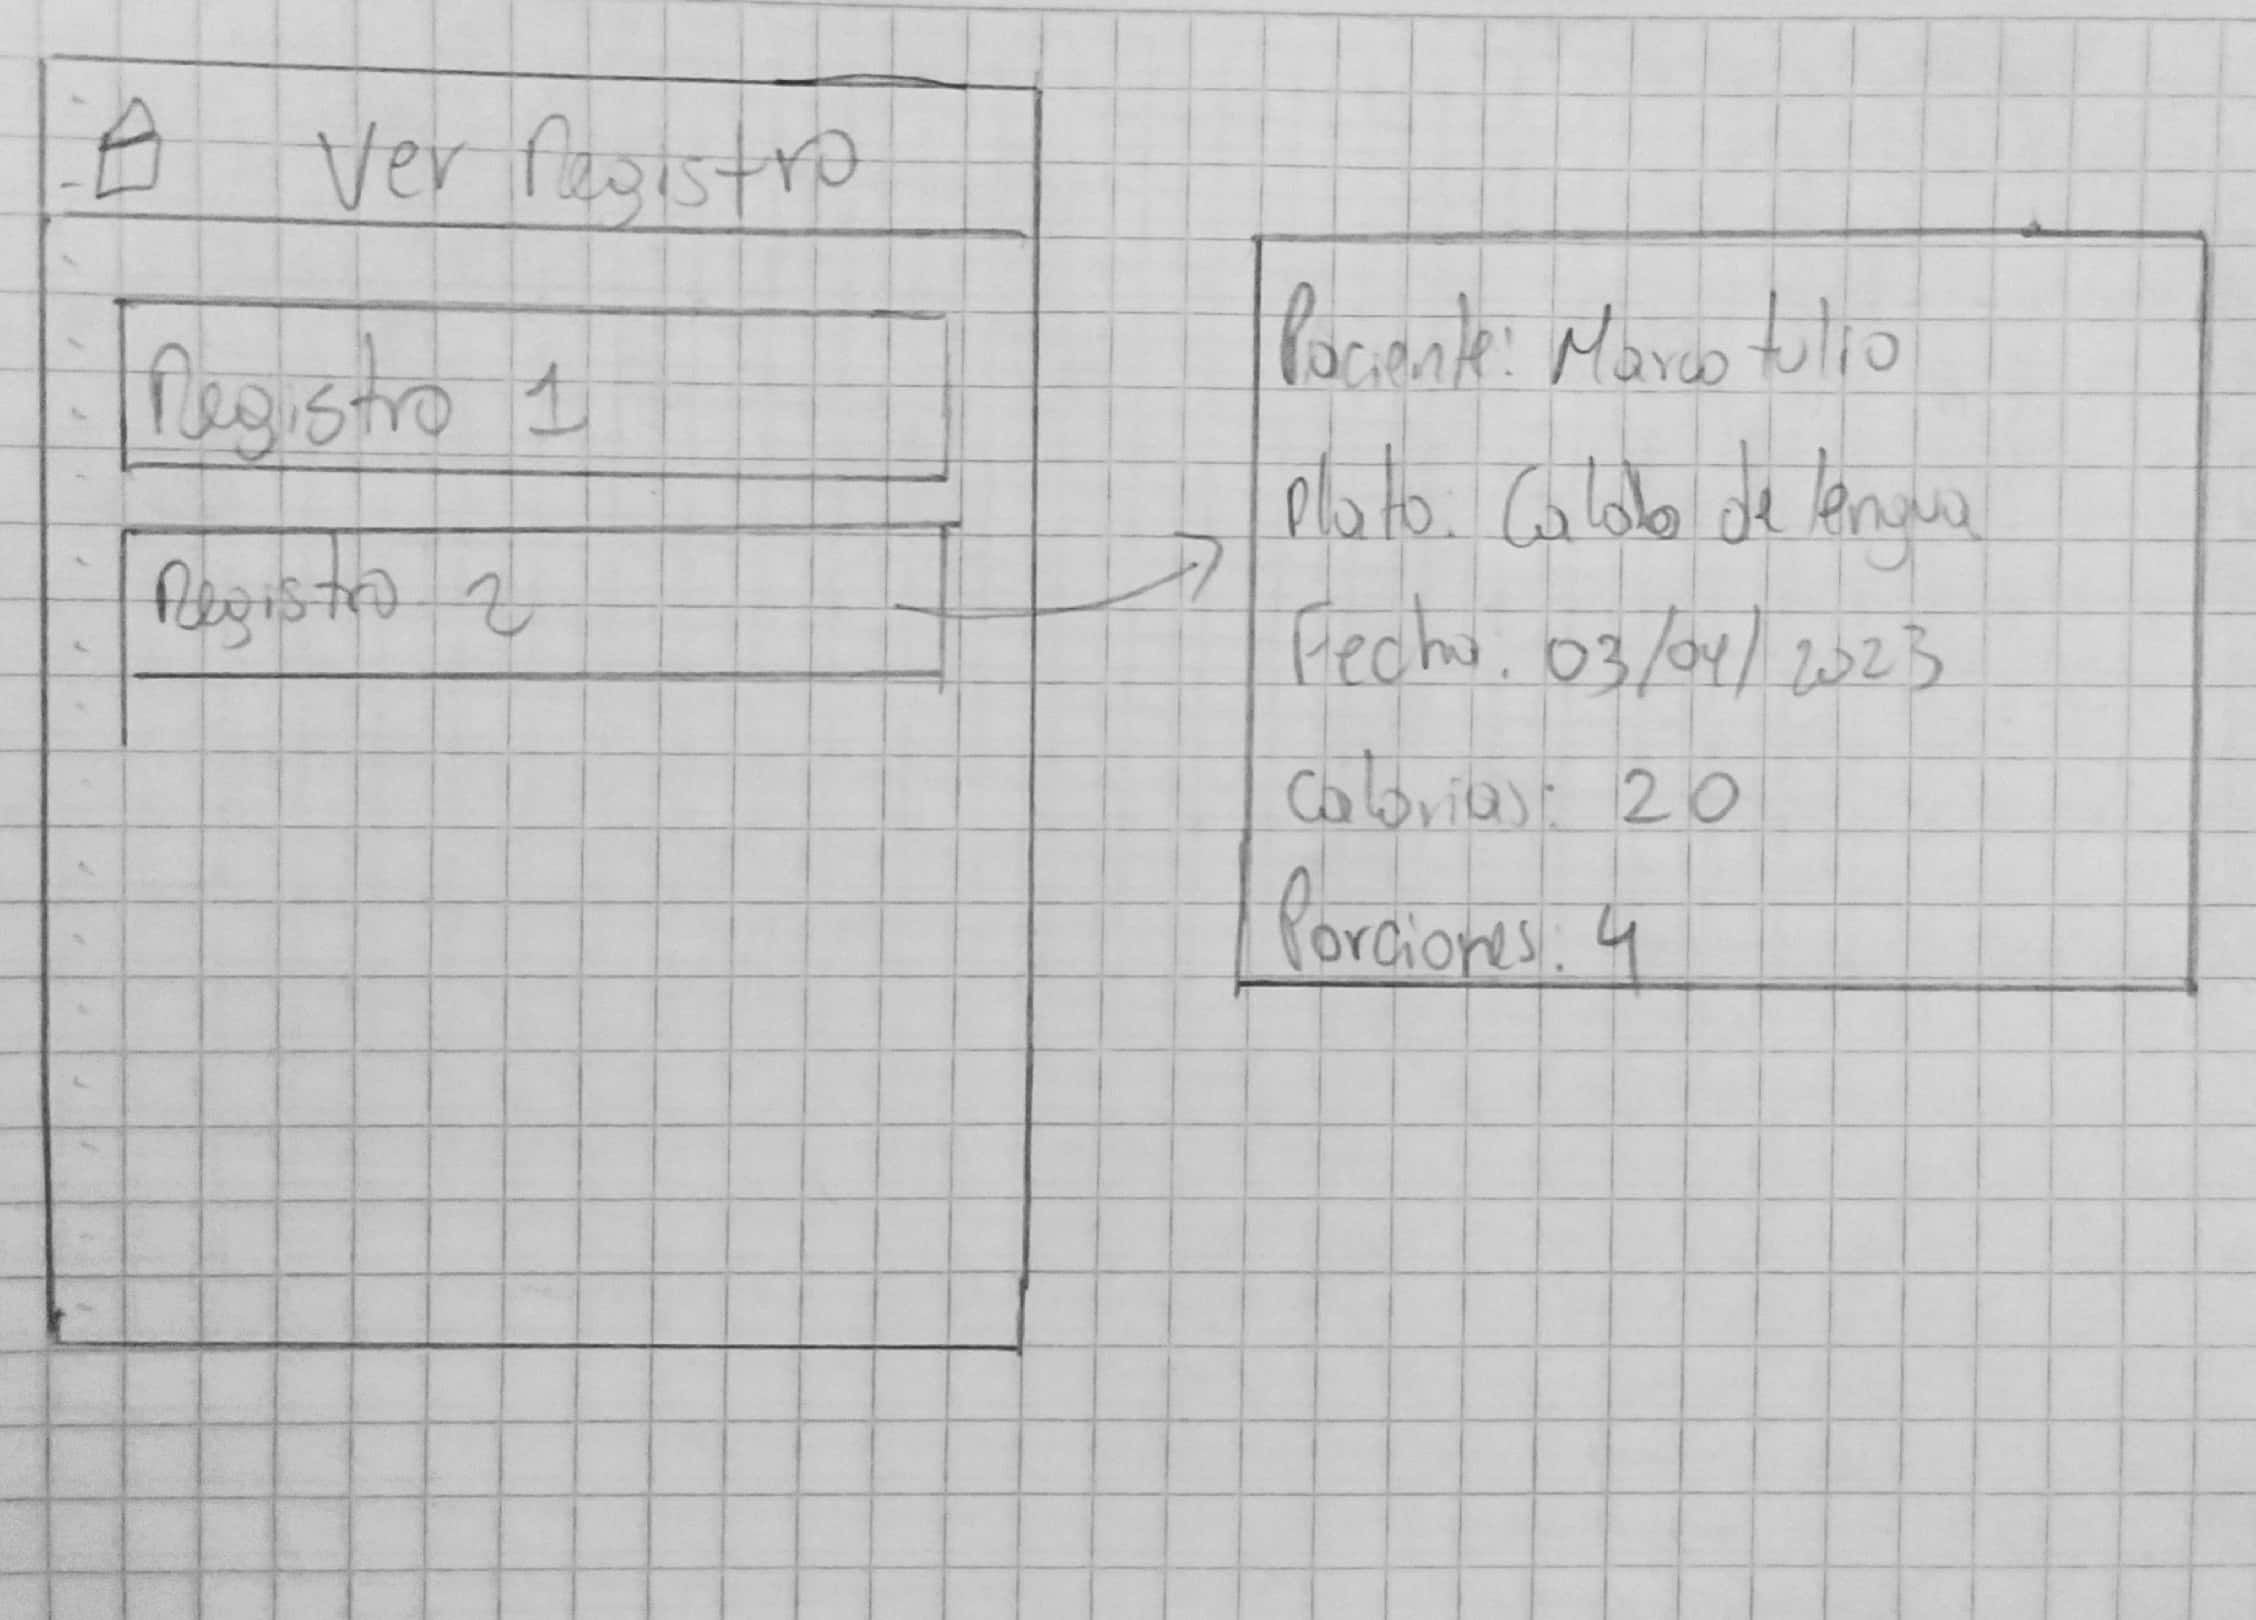 Ver Registro
Registro 1
Registro 2
Paciente: Marco tulio
Plato: Caldo de lengua
Fecha: 03/04/2023
Calorias: 20
Porciones: 4